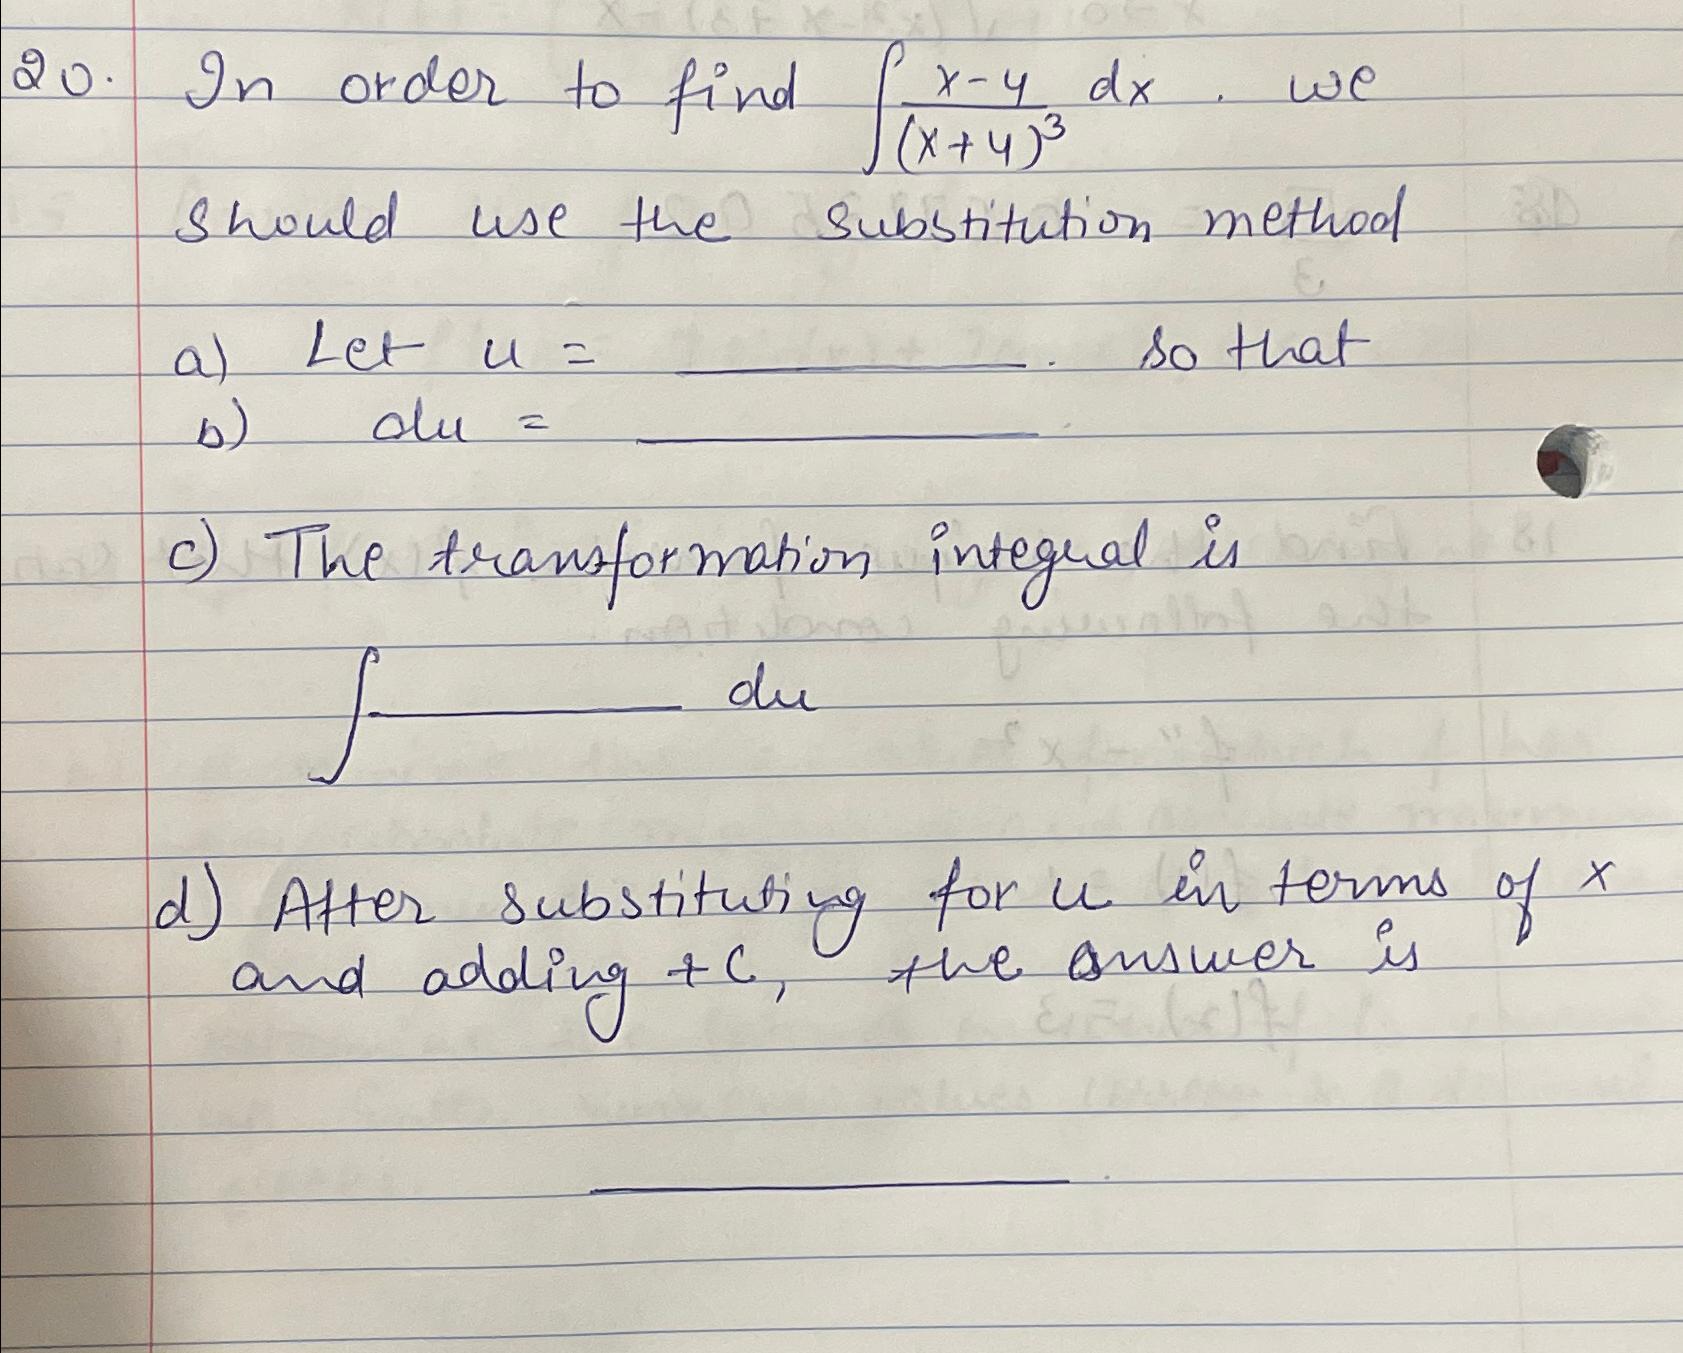 20. In order to find ∫ x-4/(x+4)³ dx. we
should use the substitution method
a) Let u = ________. so that
b) du = ________
c) The transformation integral is
∫ ________ du
d) After substituting for u in terms of x
and adding +C, the answer is
________.